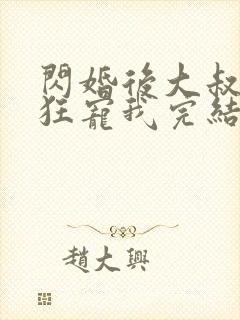 閃婚後大叔
狂寵我完結
趙大興